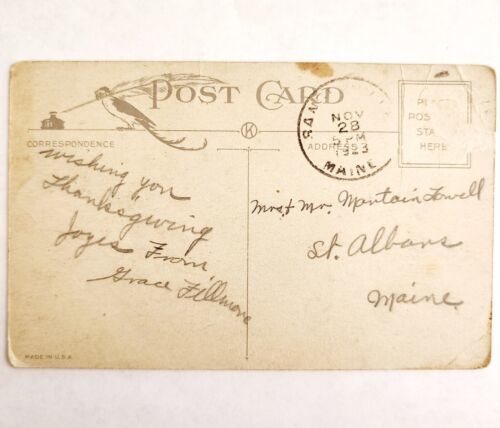 POST CARD
K
CORRESPONDENCE
ADDRESS
NOV
28
PM
1923
MAINE
PLACE
POS
STA
HERE
wishing you
Thanksgiving
Joyes From
Grace Fillmore
Mrs & Mr. Lowell
St. Albans
Maine.
MADE IN U.S.A.